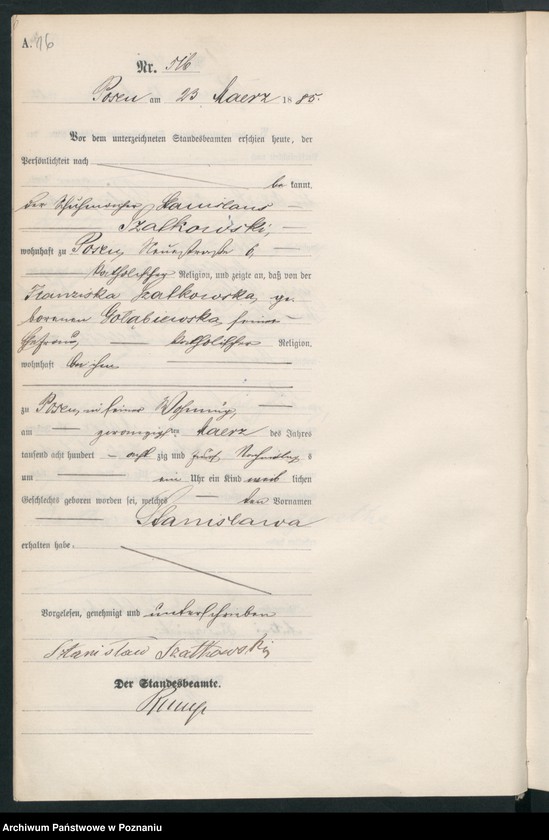 A. 16
Nr. 516
Posen am 23 Maerz 1885.
Vor dem unterzeichneten Standesbeamten erschien heute, der
Persönlichkeit nach
be kannt,
der Schuhmacher Stanislaus
Szatkowski,
wohnhaft zu Posen, Neuestraße 6,
katholischer Religion, und zeigte an, daß von der
Franziska Szatkowska, ge-
borenen Gołąbiewska, seiner
Ehefrau, katholischer Religion,
wohnhaft bei ihm
zu Posen, in seiner Wohnung,
am zwanzigsten Maerz des Jahres
tausend acht hundert acht zig und fünf Nachmittags
um ein Uhr ein Kind weib lichen
Geschlechts geboren worden sei, welches den Vornamen
Stanisława
erhalten habe.
Vorgelesen, genehmigt und unterschrieben
Stanisław Szatkowski
Der Standesbeamte.
Archiwum Państwowe w Poznaniu